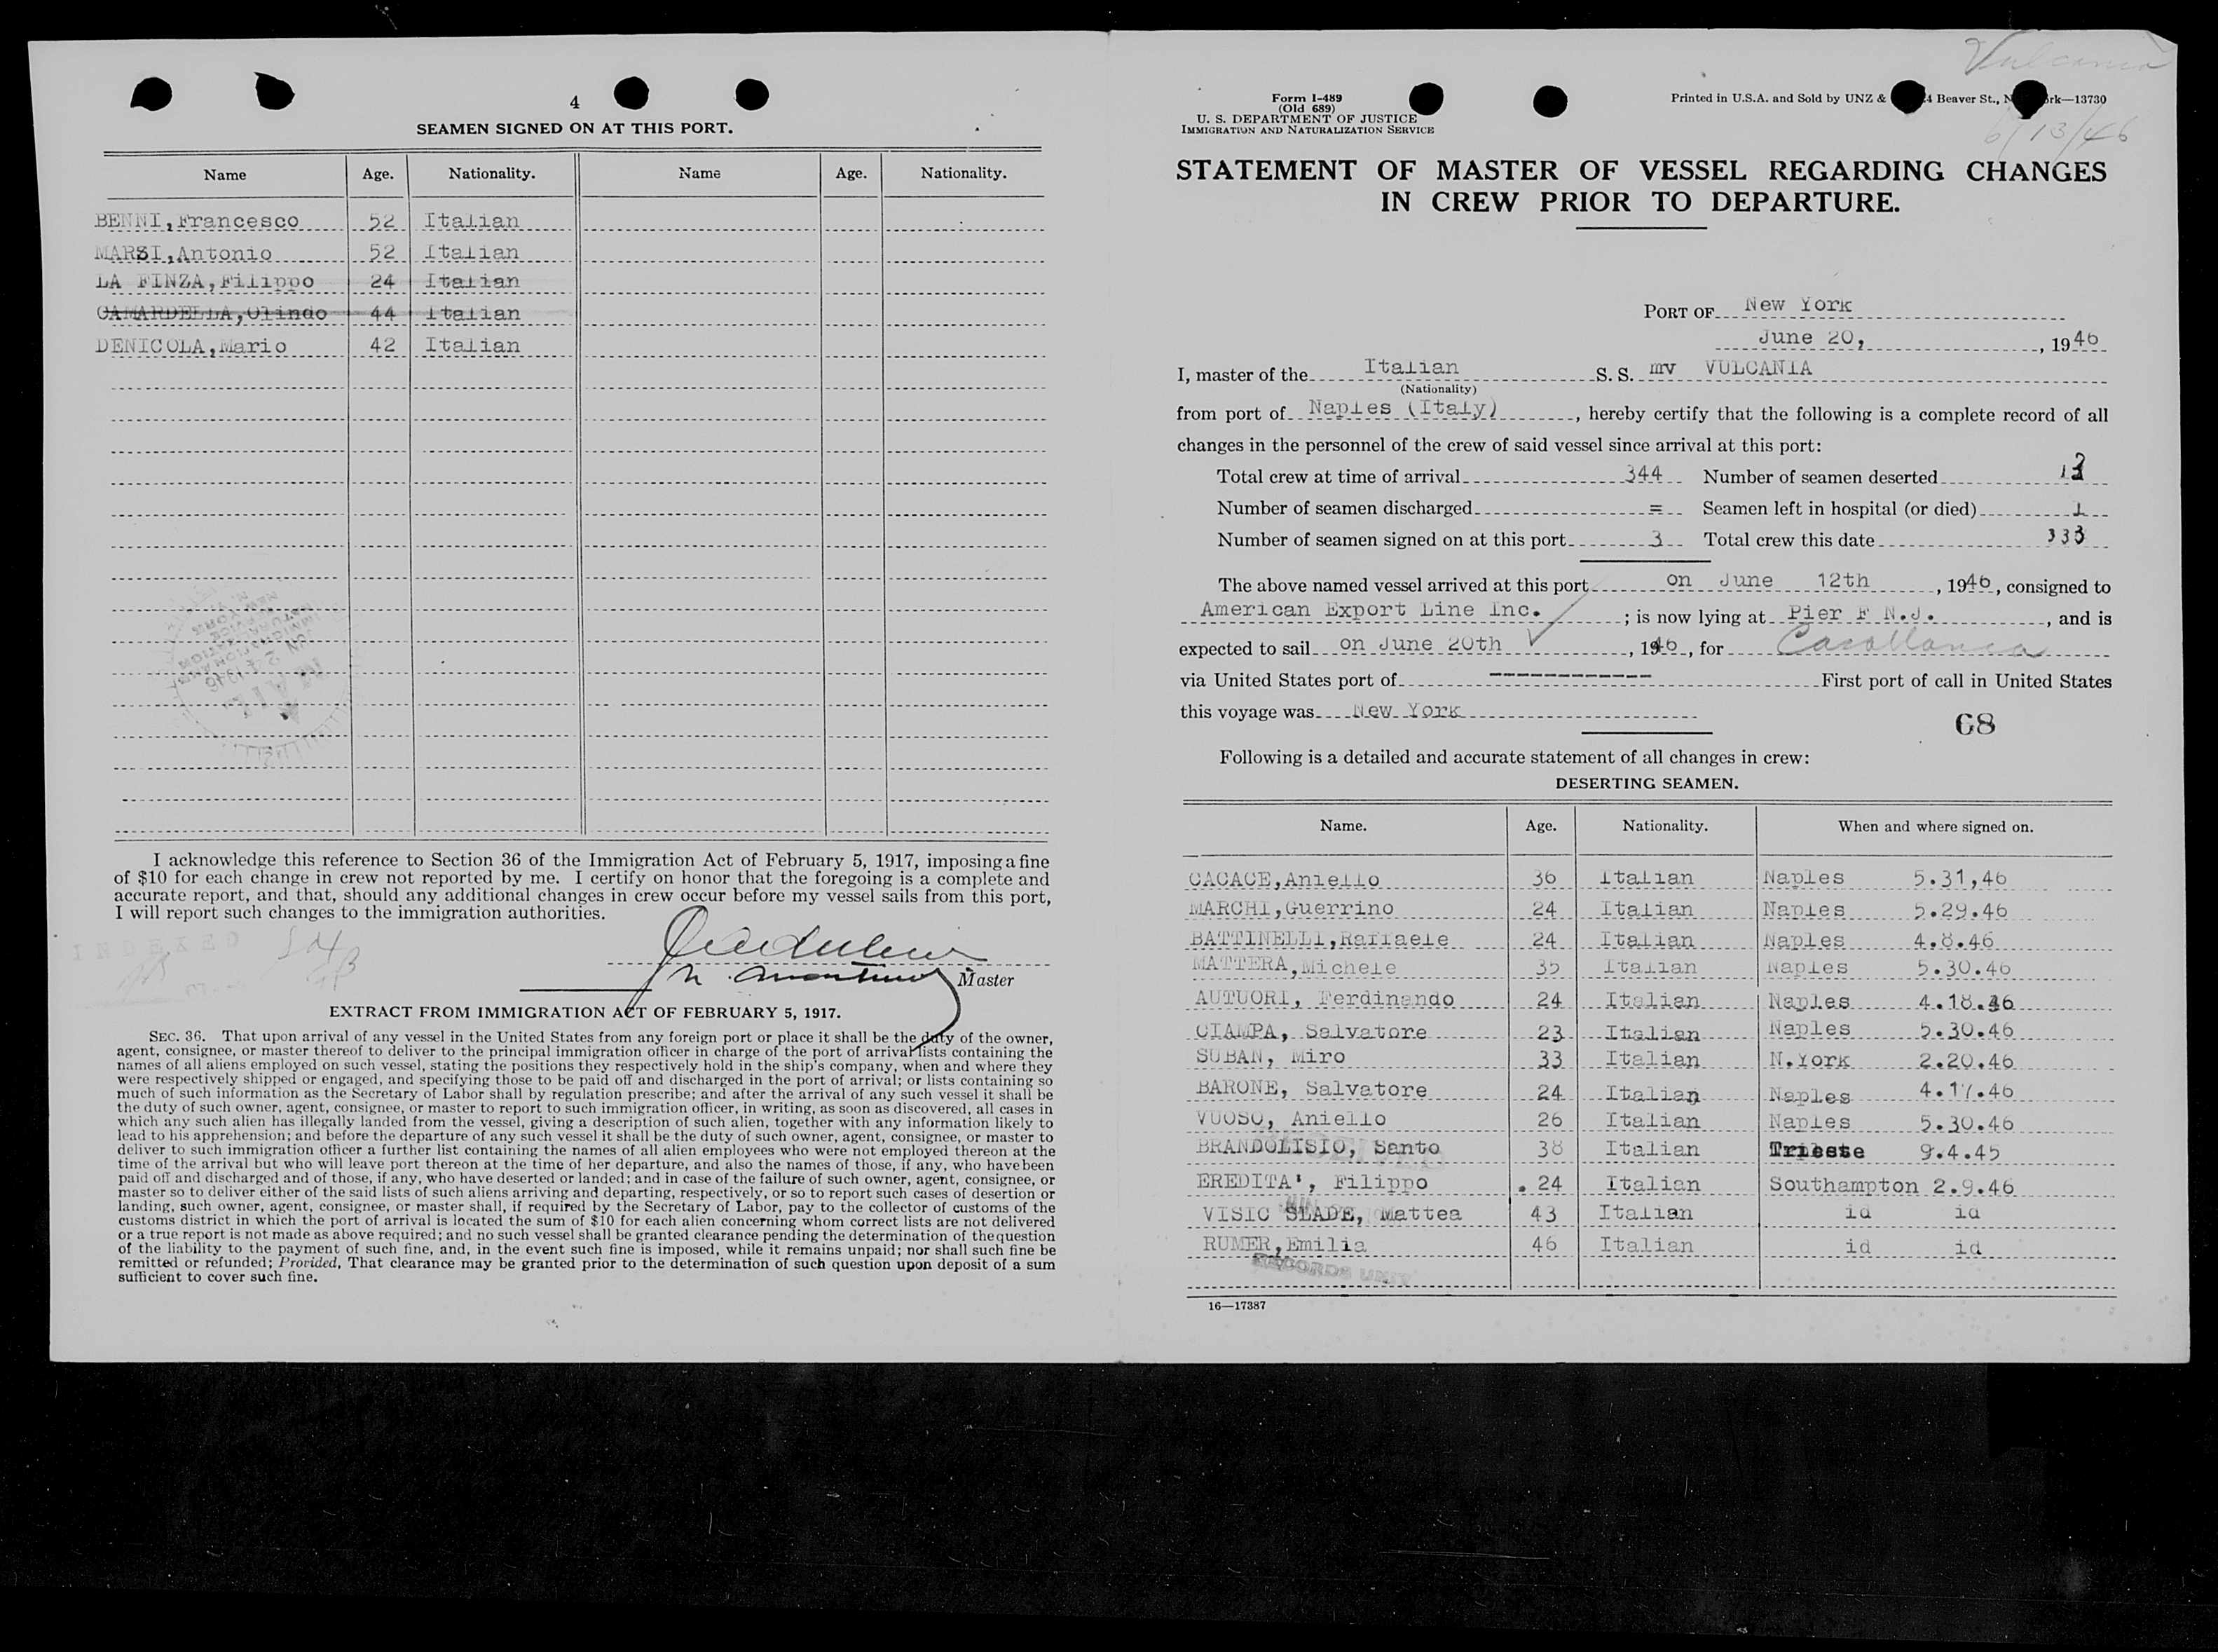 4
SEAMEN SIGNED ON AT THIS PORT.
Name Age. Nationality. Name Age. Nationality.
BENNI,Francesco 52 Italian
MARSI,Antonio 52 Italian
LA FINZA,Filippo 24 Italian
CAMARDELLA,Olindo 44 Italian
DENICOLA,Mario 42 Italian
I acknowledge this reference to Section 36 of the Immigration Act of February 5, 1917, imposing a fine
of $10 for each change in crew not reported by me. I certify on honor that the foregoing is a complete and
accurate report, and that, should any additional changes in crew occur before my vessel sails from this port,
I will report such changes to the immigration authorities.
INDEXED
Master
EXTRACT FROM IMMIGRATION ACT OF FEBRUARY 5, 1917.
SEC. 36. That upon arrival of any vessel in the United States from any foreign port or place it shall be the duty of the owner,
agent, consignee, or master thereof to deliver to the principal immigration officer in charge of the port of arrival lists containing the
names of all aliens employed on such vessel, stating the positions they respectively hold in the ship's company, when and where they
were respectively shipped or engaged, and specifying those to be paid off and discharged in the port of arrival; or lists containing so
much of such information as the Secretary of Labor shall by regulation prescribe; and after the arrival of any such vessel it shall be
the duty of such owner, agent, consignee, or master to report to such immigration officer, in writing, as soon as discovered, all cases in
which any such alien has illegally landed from the vessel, giving a description of such alien, together with any information likely to
lead to his apprehension; and before the departure of any such vessel it shall be the duty of such owner, agent, consignee, or master to
deliver to such immigration officer a further list containing the names of all alien employees who were not employed thereon at the
time of the arrival but who will leave port thereon at the time of her departure, and also the names of those, if any, who have been
paid off and discharged and of those, if any, who have deserted or landed; and in case of the failure of such owner, agent, consignee, or
master so to deliver either of the said lists of such aliens arriving and departing, respectively, or so to report such cases of desertion or
landing, such owner, agent, consignee, or master shall, if required by the Secretary of Labor, pay to the collector of customs of the
customs district in which the port of arrival is located the sum of $10 for each alien concerning whom correct lists are not delivered
or a true report is not made as above required; and no such vessel shall be granted clearance pending the determination of the question
of the liability to the payment of such fine, and, in the event such fine is imposed, while it remains unpaid; nor shall such fine be
remitted or refunded; Provided, That clearance may be granted prior to the determination of such question upon deposit of a sum
sufficient to cover such fine.
Vulcania
6/13/46
Form I-489
(Old 689)
U. S. DEPARTMENT OF JUSTICE
IMMIGRATION AND NATURALIZATION SERVICE
Printed in U.S.A. and Sold by UNZ & Beaver St., 13730
STATEMENT OF MASTER OF VESSEL REGARDING CHANGES
IN CREW PRIOR TO DEPARTURE.
PORT OF New York
June 20, , 1946
I, master of the Italian S. S. mv VULCANIA
(Nationality)
from port of Naples (Italy) , hereby certify that the following is a complete record of all
changes in the personnel of the crew of said vessel since arrival at this port:
Total crew at time of arrival 344 Number of seamen deserted
Number of seamen discharged = Seamen left in hospital (or died) 1
Number of seamen signed on at this port 3 Total crew this date 333
The above named vessel arrived at this port on June 12th , 1946, consigned to
American Export Line Inc. ; is now lying at Pier F N.J. , and is
expected to sail on June 20th , 1946, for Casablanca
via United States port of ------------- First port of call in United States
this voyage was New York
68
Following is a detailed and accurate statement of all changes in crew:
DESERTING SEAMEN.
Name. Age. Nationality. When and where signed on.
CACACE,Aniello 36 Italian Naples 5.31,46
MARCHI,Guerrino 24 Italian Naples 5.29.46
BATTINELLI,Raffaele 24 Italian Naples 4.8.46
MATTERA,Michele 35 Italian Naples 5.30.46
AUTUORI, Ferdinando 24 Italian Naples 4.18.46
CIAMPA, Salvatore 23 Italian Naples 5.30.46
SUBAN, Miro 33 Italian N.York 2.20.46
BARONE, Salvatore 24 Italian Naples 4.17.46
VUOSO, Aniello 26 Italian Naples 5.30.46
BRANDOLISIO, Santo 38 Italian Trieste 9.4.45
EREDITA', Filippo 24 Italian Southampton 2.9.46
VISIC SLADE, Mattea 43 Italian id id
RUMER,Emilia 46 Italian id id
RECORDS UNIT
16—17387